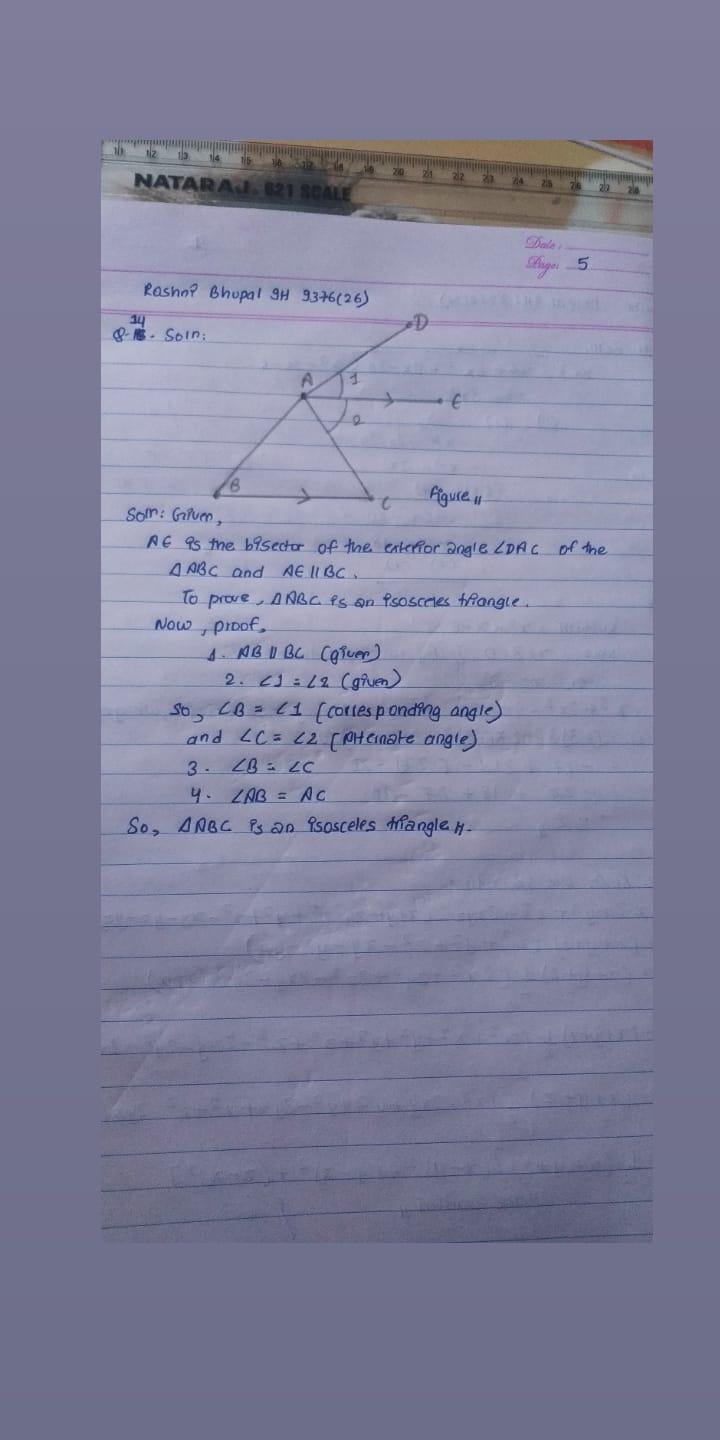 11 12 13 14 15 16 17 18 19 20 21 22 23 24 25 26 27 28
NATARAJ. 621 SCALE
Date:
Page: 5
Roshni Bhupal 9H 9376(26)
14
Q. Soln:
D
A 1
E
2
B
C Figure 11
Soln: Given,
AE is the bisector of the exterior angle ∠DAC of the
△ABC and AE ∥ BC.
To prove, △ABC is an isosceles triangle.
Now, proof,
1. AB ∥ BC (given)
2. ∠1 = ∠2 (given)
So, ∠B = ∠1 (corresponding angle)
and ∠C = ∠2 (Alternate angle)
3. ∠B = ∠C
4. ∠AB = AC
So, △ABC is an isosceles triangle